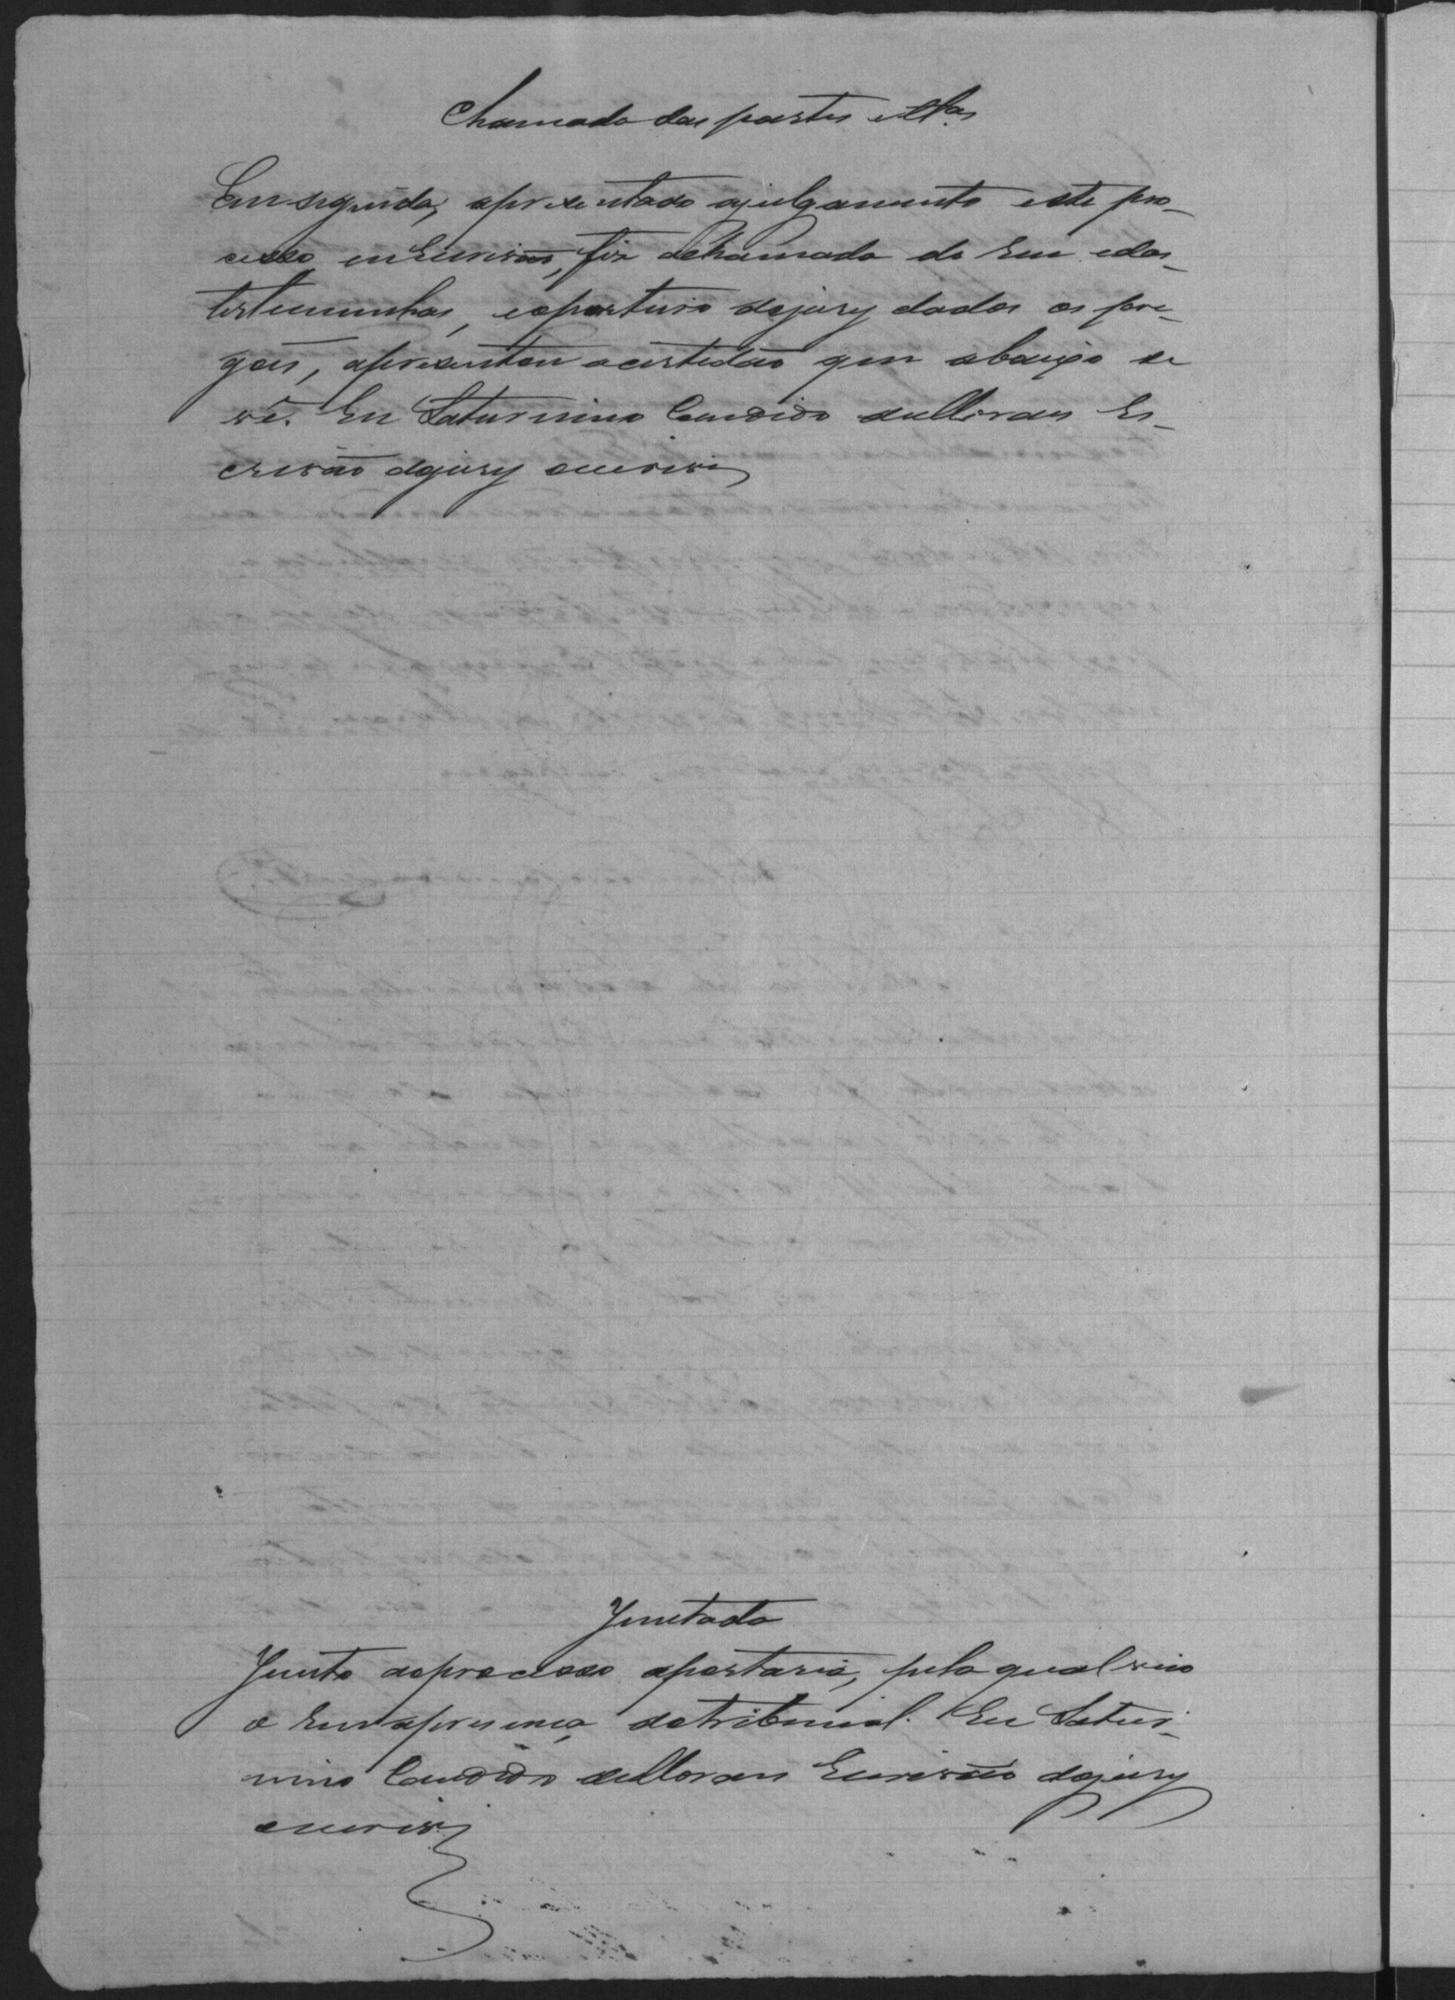 Chamada das partes e tt.as
Em seguida, apresentado ajulgamento este pro-
cesso eu Escrivão, fiz achamada do Reu edas
testemunhas, eoporteiro dojury dados os pre-
gões, apresentou acertidão que abaixo se
vê. Eu Saturnino Candido de Moraes Es-
crivão dojury escrivi
Juntada
Junto aoprocesso aportaria, pela qual veio
o Reu apresença dotribunal. Eu Satur-
nino Candido de Moraes Escrivão dojury
escrivi